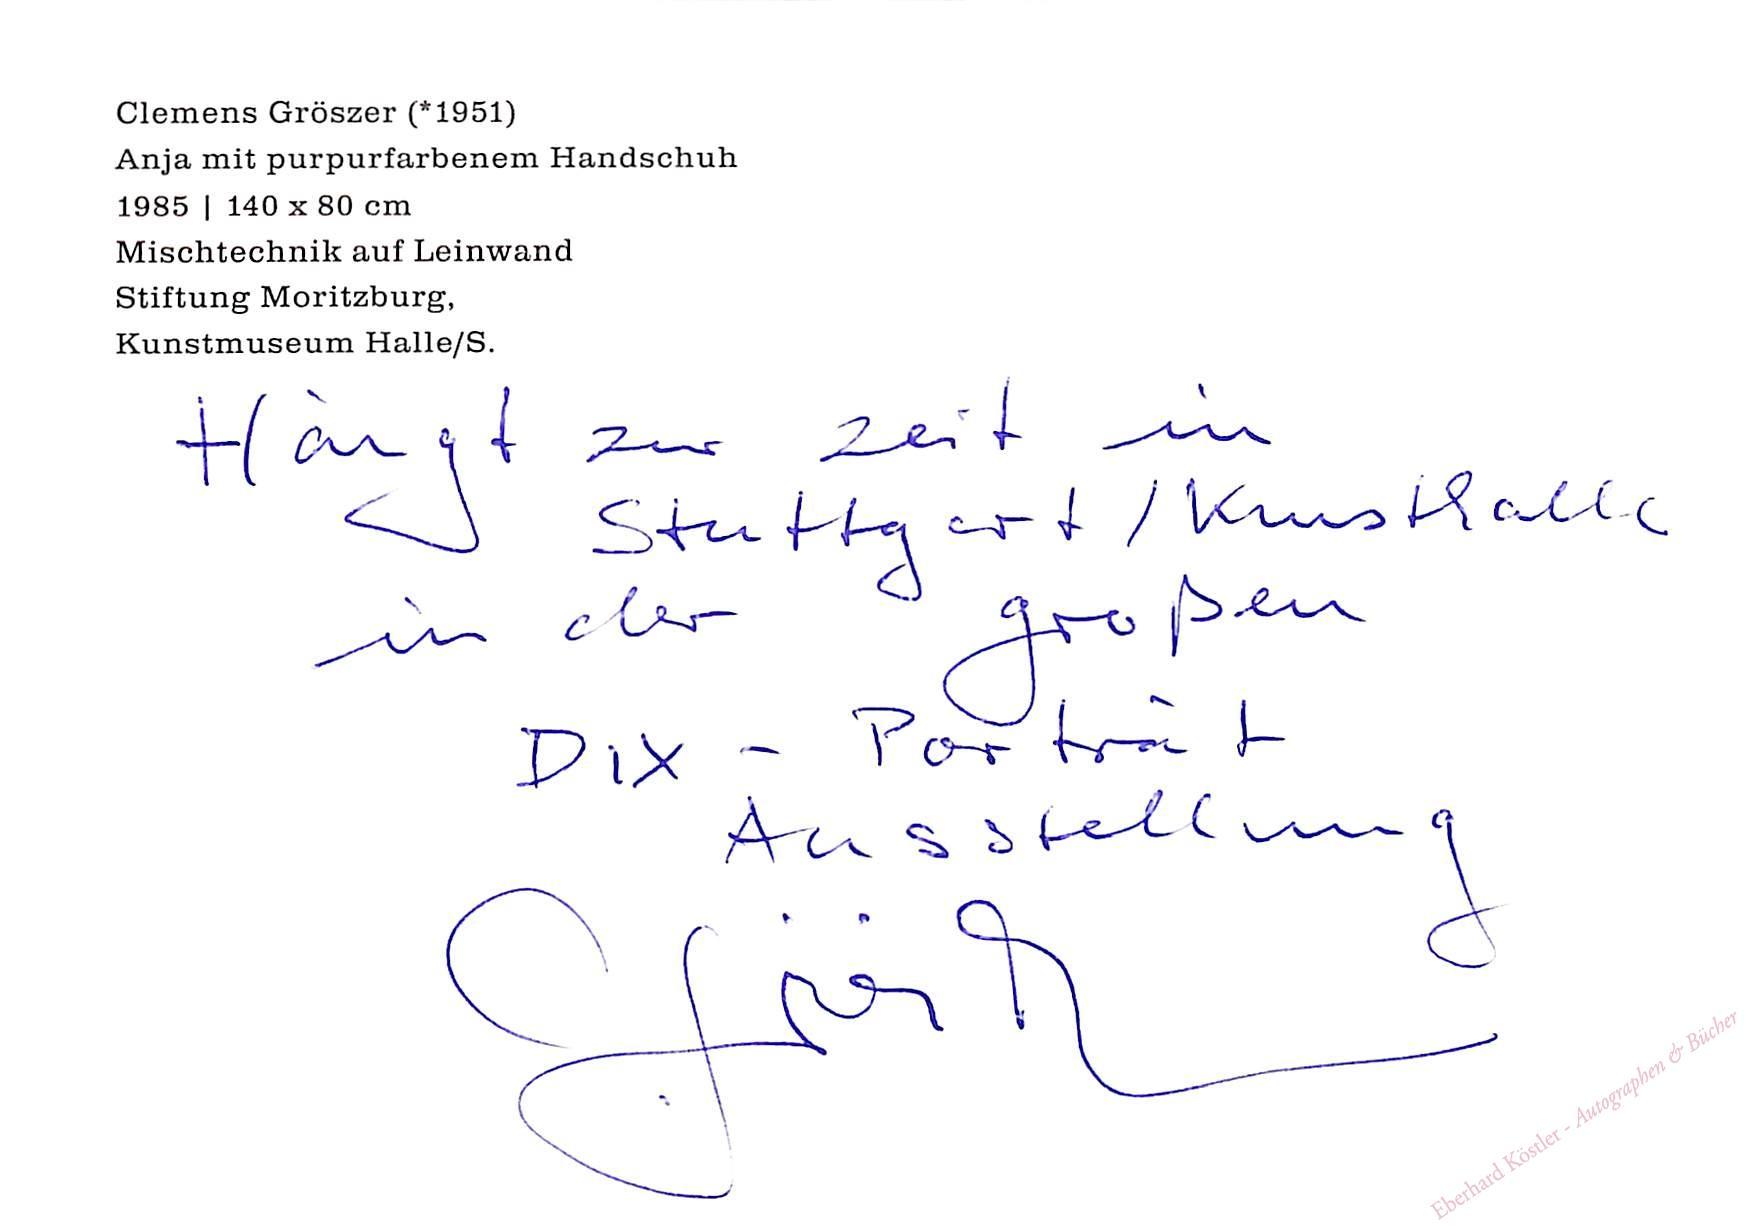 Clemens Gröszer (*1951)
Anja mit purpurfarbenem Handschuh
1985 | 140 x 80 cm
Mischtechnik auf Leinwand
Stiftung Moritzburg,
Kunstmuseum Halle/S.
Hängt zur zeit in
Stuttgart / Kunsthalle
in der großen
Dix - Porträt
Ausstellung
Eberhard Köstler - Autographen & Bücher